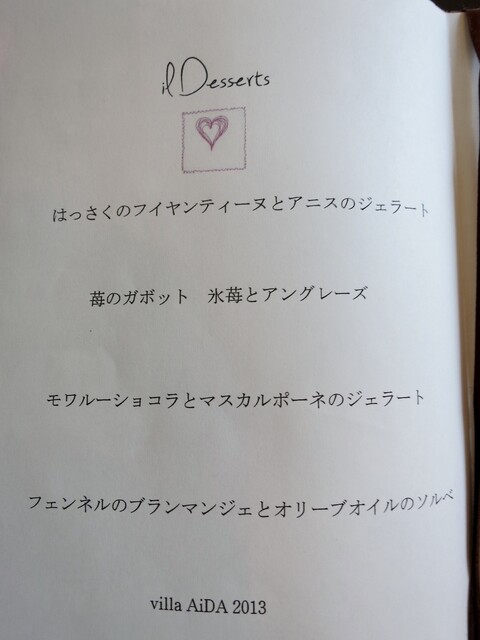 il Desserts
はっさくのフイヤンティーヌとアニスのジェラート
苺のガボット　氷苺とアングレーズ
モワルーショコラとマスカルポーネのジェラート
フェンネルのブランマンジェとオリーブオイルのソルベ
villa AiDA 2013